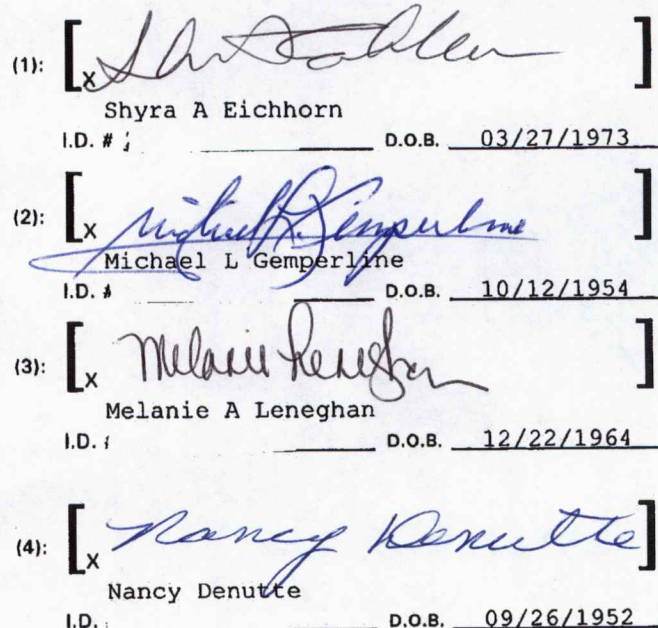 (1): [x Shyra Eichhorn ]
Shyra A Eichhorn
I.D. # D.O.B. 03/27/1973
(2): [x Michael L. Gemperline ]
Michael L Gemperline
I.D. # D.O.B. 10/12/1954
(3): [x Melanie Leneghan ]
Melanie A Leneghan
I.D. D.O.B. 12/22/1964
(4): [x Nancy Denutte ]
Nancy Denutte
I.D. D.O.B. 09/26/1952